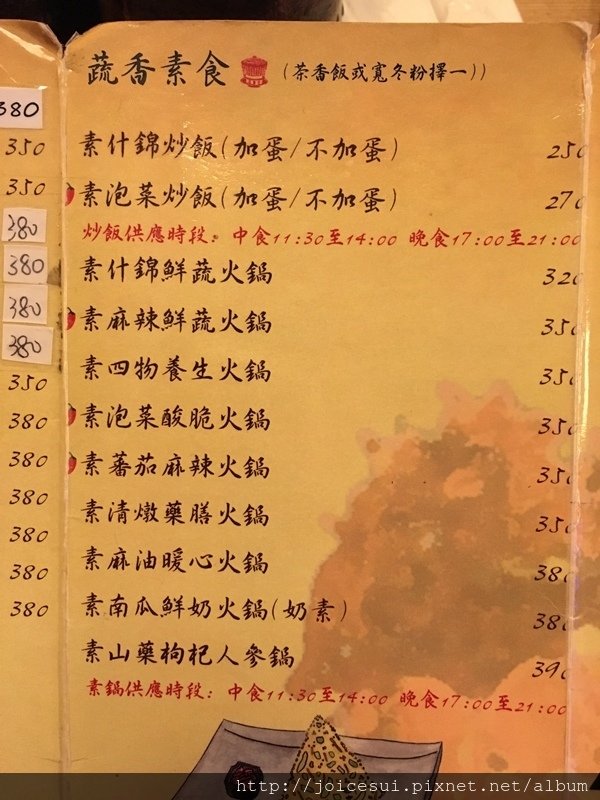 蔬香素食 (茶香飯或寬冬粉擇一))
素什錦炒飯(加蛋/不加蛋) 250
素泡菜炒飯(加蛋/不加蛋) 270
炒飯供應時段：中食11:30至14:00 晚食17:00至21:00
素什錦鮮蔬火鍋 320
素麻辣鮮蔬火鍋 350
素四物養生火鍋 350
素泡菜酸脆火鍋 350
素蕃茄麻辣火鍋 350
素清燉藥膳火鍋 350
素麻油暖心火鍋 380
素南瓜鮮奶火鍋(奶素) 380
素山藥枸杞人參鍋 390
素鍋供應時段：中食11:30至14:00 晚食17:00至21:00
380
350
350
380
380
380
380
350
380
380
380
380
380
380
http://joicesui.pixnet.net/album